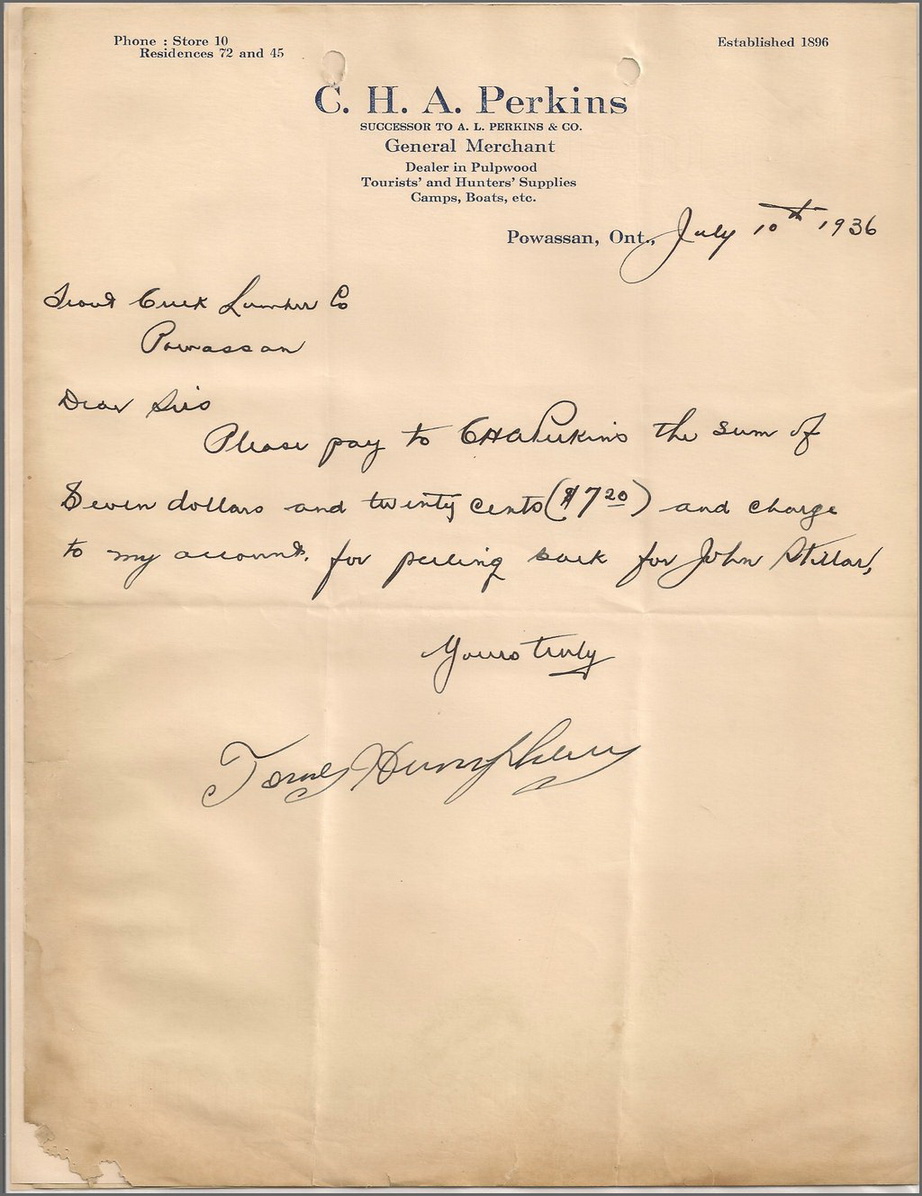 Phone : Store 10
Residences 72 and 45
Established 1896
C. H. A. Perkins
SUCCESSOR TO A. L. PERKINS & CO.
General Merchant
Dealer in Pulpwood
Tourists' and Hunters' Supplies
Camps, Boats, etc.
Powassan, Ont., July 10th 1936
Trout Creek Lumber Co
Powassan
Dear Sirs
Please pay to CHAPerkins the sum of
Seven dollars and twenty cents ($7 20) and charge
to my account. for peeling bark for John Stillar,
Yours truly
Humphrey